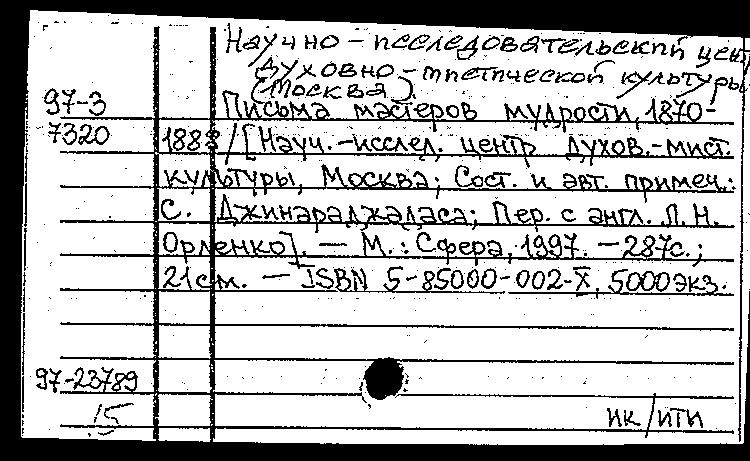 Научно-исследовательский цент
духовно-мистической культуры
(Москва).
97-3 Письма мастеров мудрости, 1870-
7320 1888/[Науч.-исслед. центр духов.-мист.
культуры, Москва; Сост. и авт. примеч.:
С. Джинараджадаса; Пер. с англ. Л.Н.
Орленко]. — М.: Сфера, 1997. — 287с.;
21см. — ISBN 5-85000-002-X, 5000экз.
97-23789
15 ИК/ИТИ